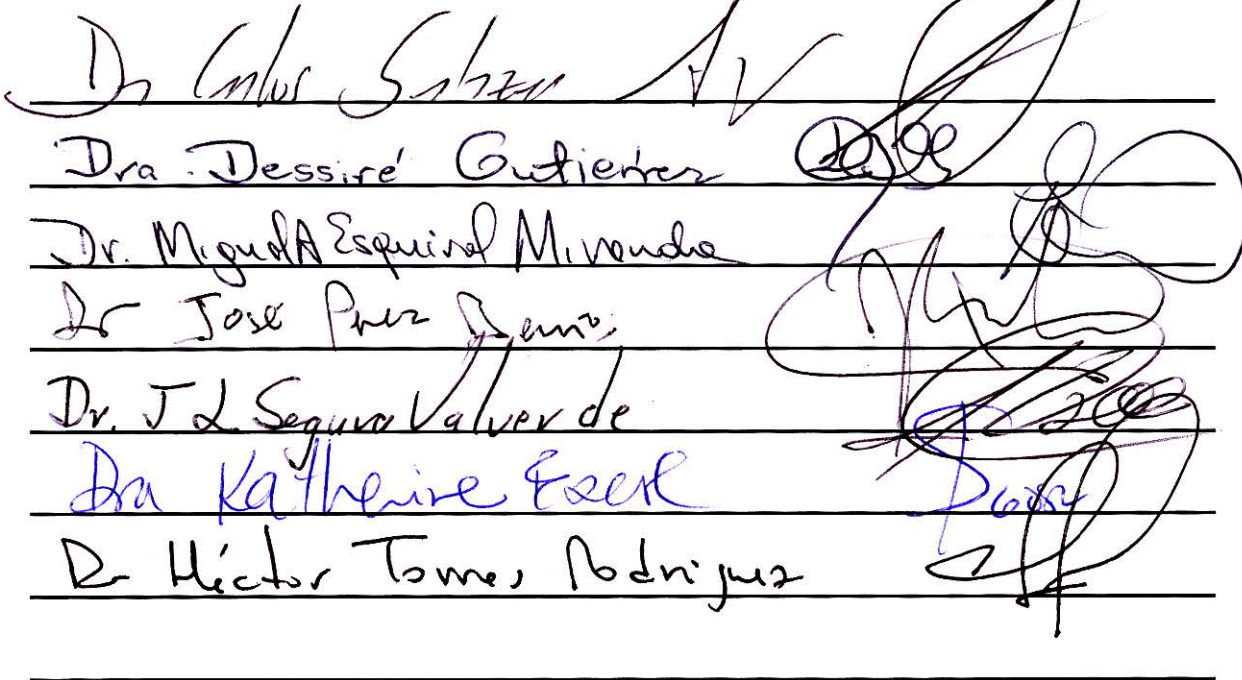 Dr Carlos Salazar
Dra. Dessiré Gutierrez
Dr. Miguel A Esquivel Miranda
Dr José Perez
Dr. J L Segura Valverde
Dra Katherine
Dr Héctor Torres Rodriguez